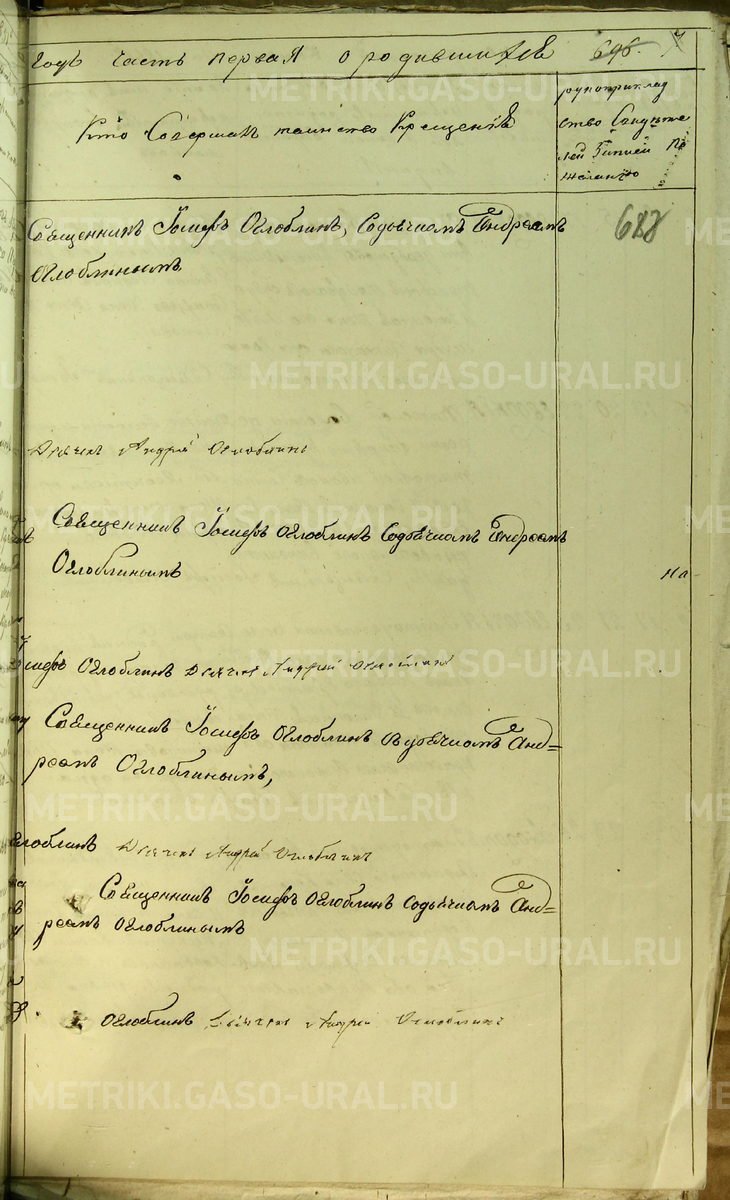 годъ часть первая о родившихся 696. 7
Кто Совершалъ таинство Крещенія
рукоприклад
ство Свидѣте
лей Записи По
желанію
Священникъ Іосифъ Оглоблинъ, Содьячкомъ Андреемъ 688
Оглоблинымъ
Дьячекъ Андрей Оглоблинъ
Священникъ Іосифъ Оглоблинъ Содьячкомъ Андреемъ
Оглоблинымъ
на
Іосифъ Оглоблинъ Дьячекъ Андрей Оглоблинъ
Священникъ Іосифъ Оглоблинъ Андреемъ Оглоблинымъ,
Оглоблинъ Дьячекъ Андрей Оглоблинъ
Священникъ Іосифъ Оглоблинъ Содьячкомъ Анд=
реемъ Оглоблинымъ
Оглоблинъ Дьячекъ Андрей Оглоблинъ
METRIKI.GASO-URAL.RU